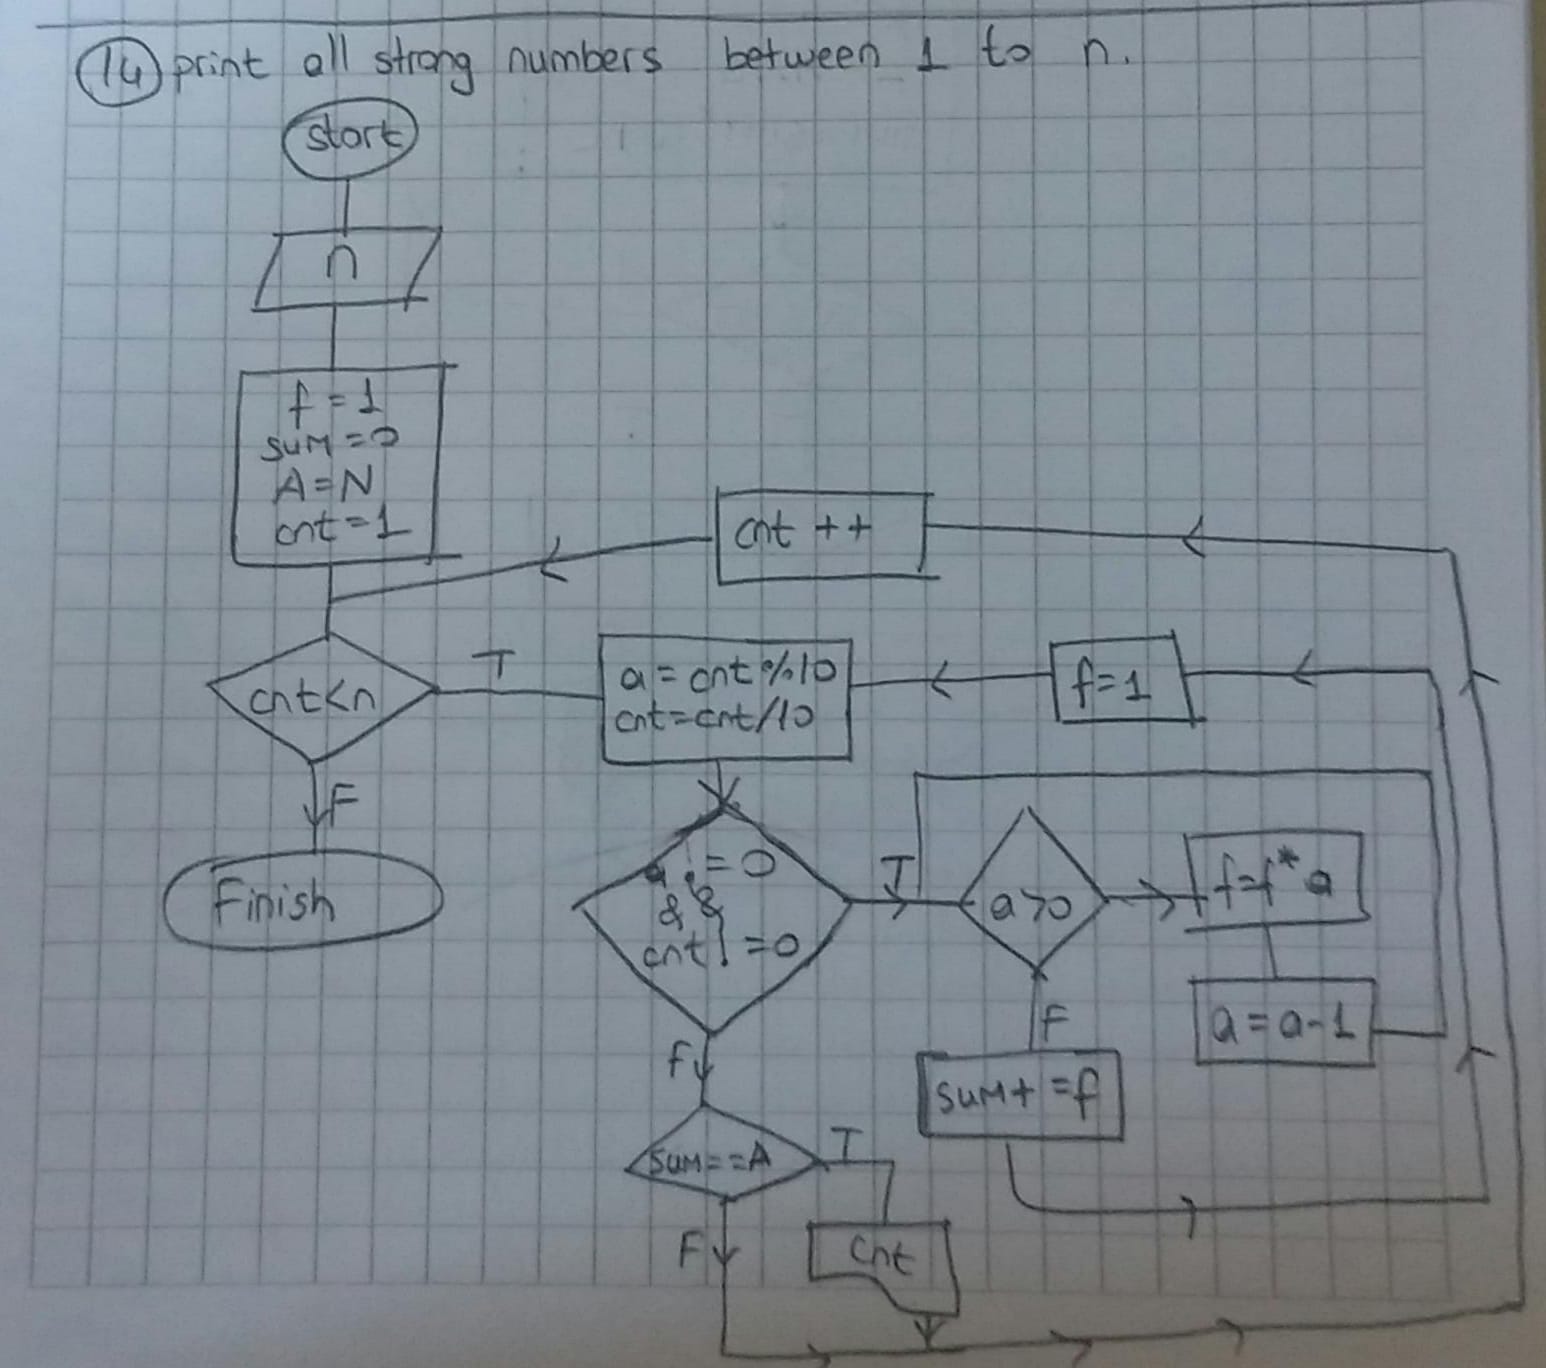 14 print all strong numbers between 1 to n.
start
n
f=1
sum=0
A=N
cnt=1
cnt ++
cnt<n
T
a = cnt%10
cnt=cnt/10
f=1
F
Finish
a!=0
&&
cnt!=0
T
a>0
f=f*a
a=a-1
F
sum+=f
F
sum==A
T
F
cnt